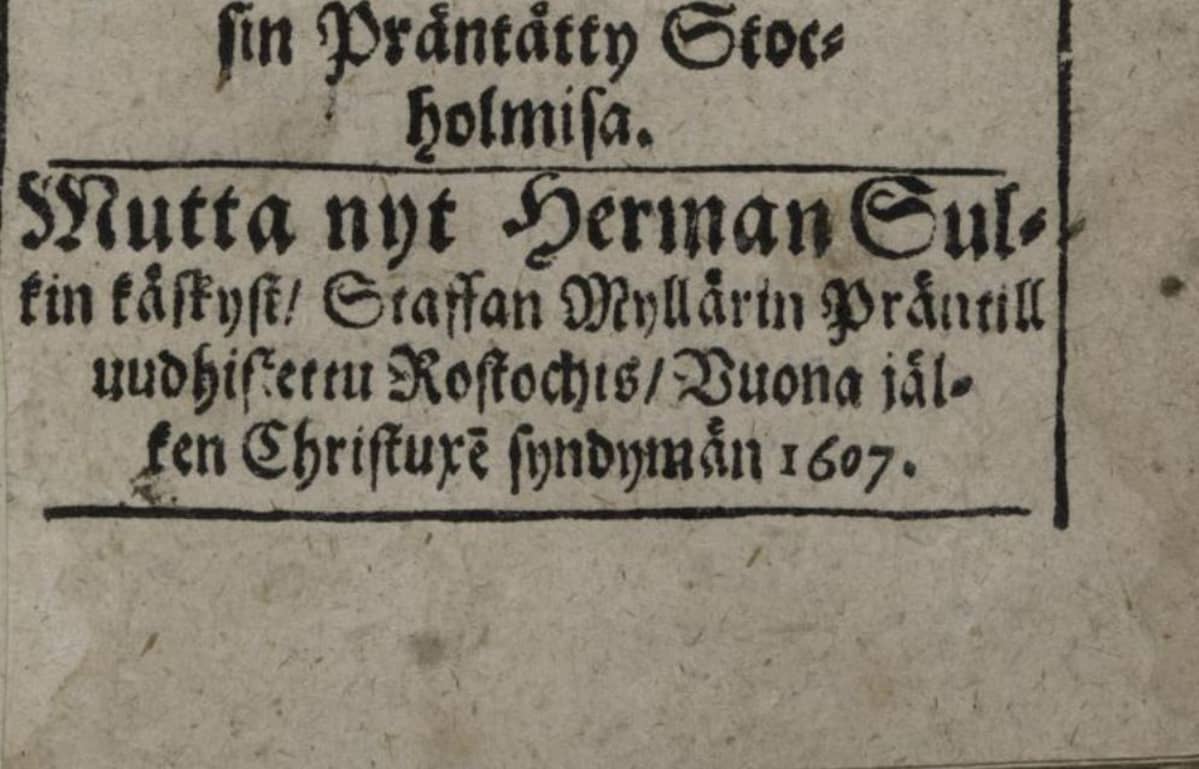 ſin Präntåtty Stoc⸗
holmiſa.
Mutta nyt Herman Sul⸗
kin kåſkyſt/ Staffan Myllårin Präntill
uudhiſtettu Roſtochis/ Vuona jäl⸗
ken Chriſtuxē ſyndymån 1607.